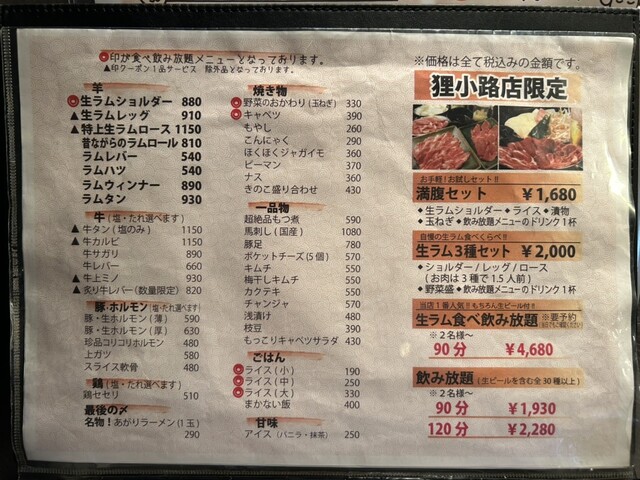 ◎印が食べ飲み放題メニューとなっております。
▲印クーポン1品サービス 除外品となっております。
羊
◎生ラムショルダー 880
▲生ラムレッグ 910
▲特上生ラムロース 1150
昔ながらのラムロール 810
ラムレバー 540
ラムハツ 540
ラムウィンナー 890
ラムタン 930
牛(塩・たれ選べます)
▲牛タン(塩のみ) 1150
▲牛カルビ 1150
牛サガリ 890
牛レバー 660
▲牛上ミノ 930
▲炙り牛レバー(数量限定) 820
豚・ホルモン(塩・たれ選べます)
豚・生ホルモン(薄) 590
豚・生ホルモン(厚) 630
珍品コリコリホルモン 480
上ガツ 580
スライス軟骨 480
鶏(塩・たれ選べます)
鶏セセリ 510
最後の〆
名物!あがりラーメン(1玉)
290
焼き物
◎野菜のおかわり(玉ねぎ) 330
◎キャベツ 390
もやし 260
こんにゃく 290
ほくほくジャガイモ 360
ピーマン 370
ナス 360
きのこ盛り合わせ 430
一品物
超絶品もつ煮 590
馬刺し(国産) 1080
豚足 780
ポケットチーズ(5個) 570
キムチ 550
梅干しキムチ 550
カクテキ 550
チャンジャ 570
浅漬け 480
枝豆 390
もっこりキャベツサラダ 430
ごはん
◎ライス(小) 190
◎ライス(中) 250
◎ライス(大) 330
まかない飯 400
甘味
アイス(バニラ・抹茶) 250
※価格は全て税込みの金額です。
狸小路店限定
お手軽!お試しセット!!
満腹セット ¥1,680
◆生ラムショルダー◆ライス◆漬物
◆玉ねぎ◆飲み放題メニューのドリンク1杯
自慢の生ラム食べくらべ!!
生ラム3種セット ¥2,000
◆ショルダー/レッグ/ロース
(お肉は3種で1.5人前)
◆野菜盛◆飲み放題メニューのドリンク1杯
当店1番人気!!もちろん生ビール付!!
生ラム食べ飲み放題 ※要予約
※2名様～
90分 ¥4,680
飲み放題(生ビールを含む全30種以上)
※2名様～
90分 ¥1,930
120分 ¥2,280